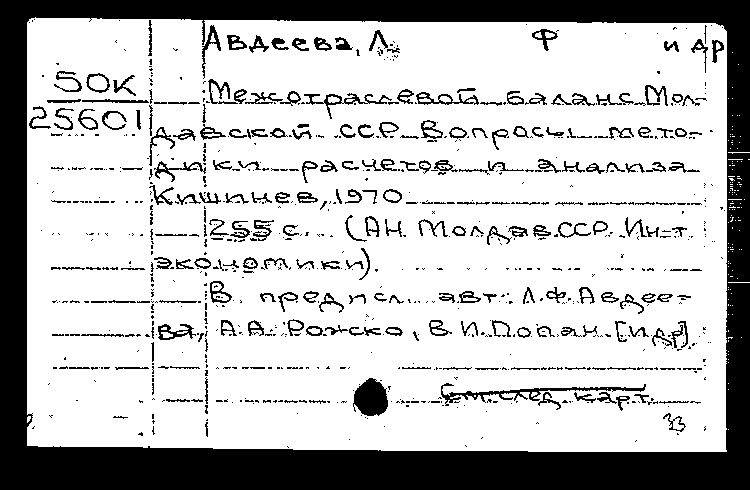 Авдеева, Л. Ф и др
50К
25601
Межотраслевой баланс Мол-
давской ССР. Вопросы мето-
дики расчетов и анализа
Кишинев, 1970
255 с. (АН Молдав. ССР. Ин-т
экономики).
В предисл. авт.: Л.Ф. Авдее-
ва, А.А. Рожко, В.И. Попан. [и др].
См. след. карт.
33